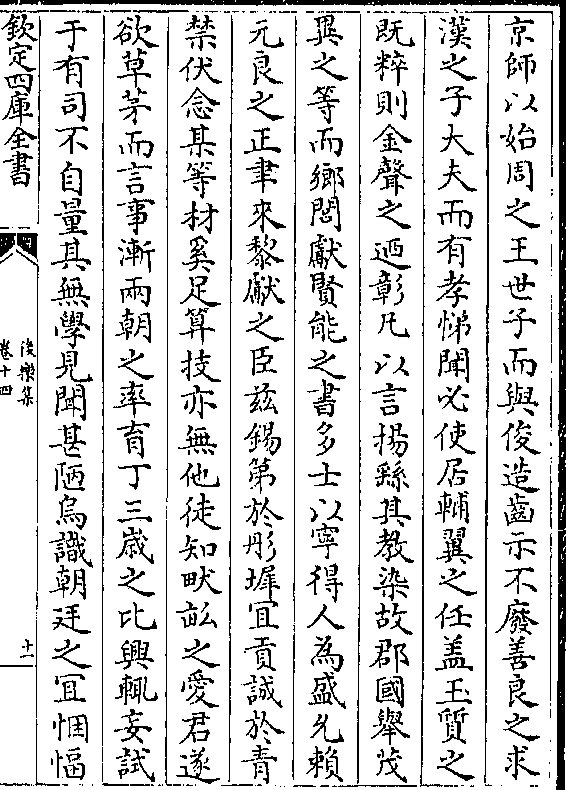 京師以始周之王世子而與俊造齒示不廢善良之求
漢之子大夫而有孝悌聞必使居輔翼之任盖玉質之
既粹則金聲之迺彰凡以言揚繇其教染故郡國舉茂
異之等而鄉閭獻賢能之書多士以寧得人為盛允賴
元良之正聿來黎獻之臣兹錫第於彤墀宜貢誠於青
禁伏念某等材奚足算技亦無他徒知畎畝之愛君遂
欲草茅而言事漸兩朝之率育丁三嵗之比興輒妄試
于有司不自量其無學見聞甚陋烏識朝廷之宜悃愊
欽定四庫全書
後樂集
卷十四
十一